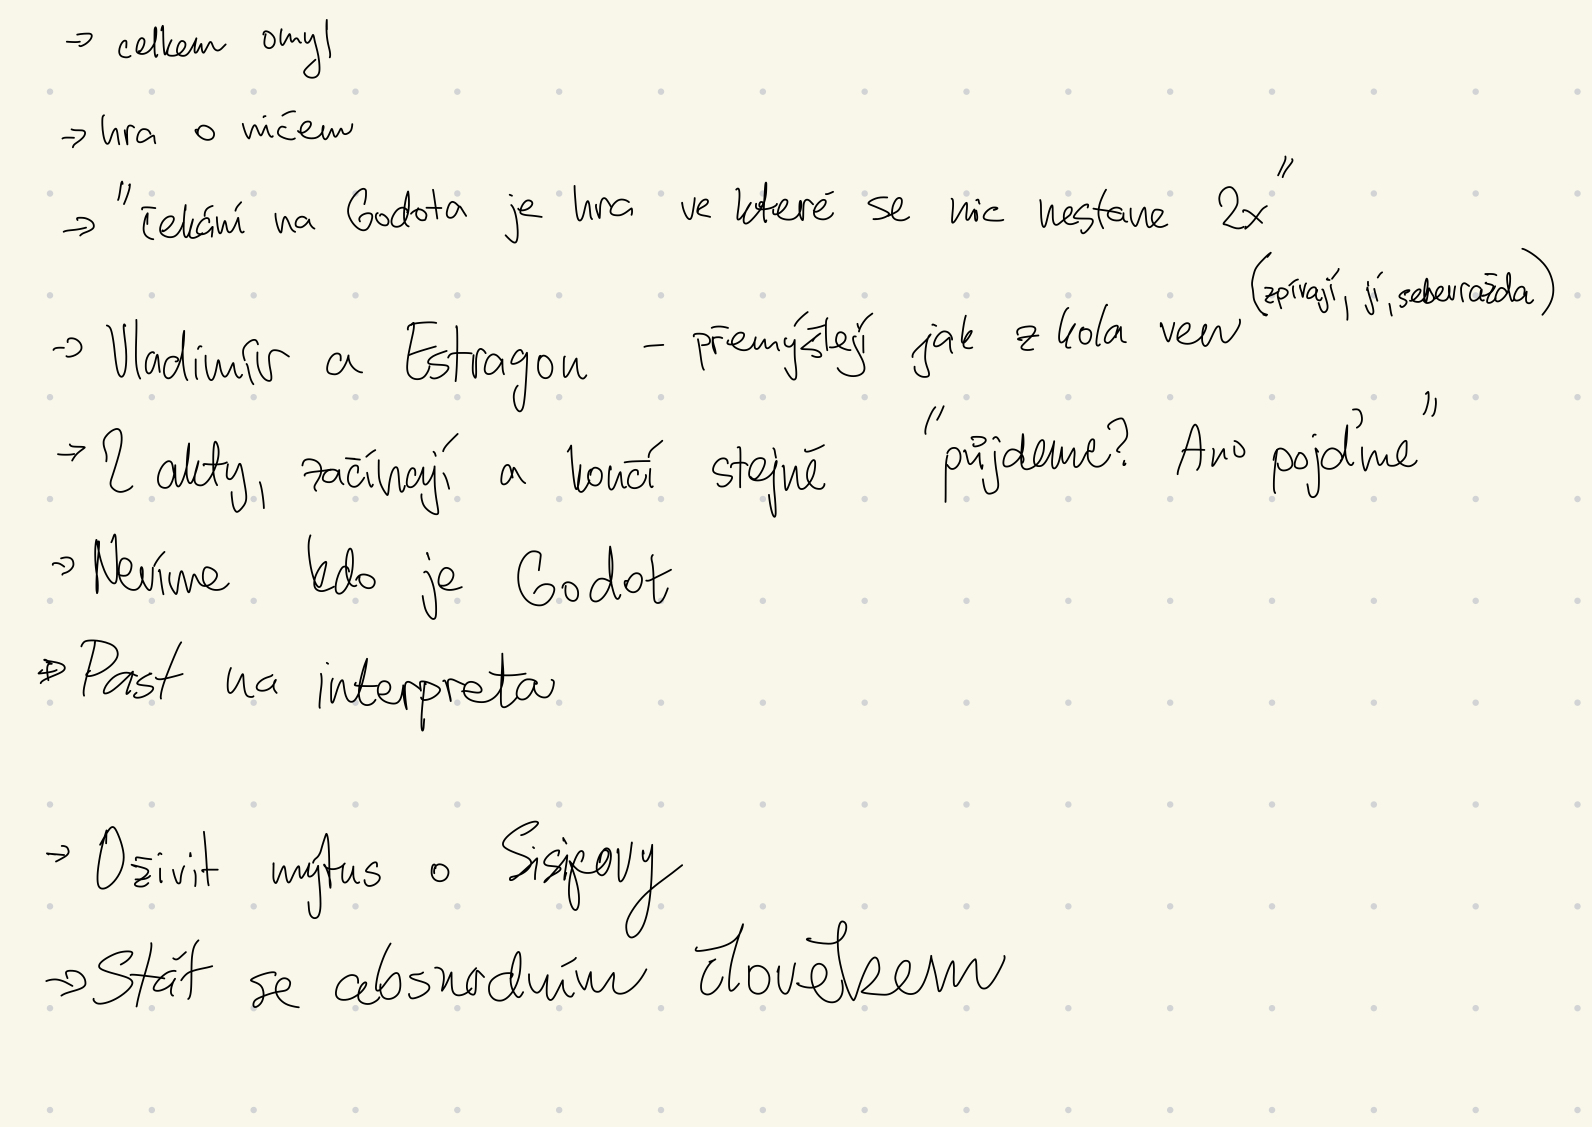 → celkem omyl
→ hra o ničem
→ "čekání na Godota je hra ve které se nic nestane 2x"
→ Vladimír a Estragon - přemýšlejí jak z kola ven (zpívají, jí, sebevražda)
→ 2 akty, začínají a končí stejně "půjdeme? Ano pojďme"
→ Nevíme kdo je Godot
⇒ Past na interpreta
→ Oživit mýtus o Sisifovy
→ Stát se absurdním člověkem